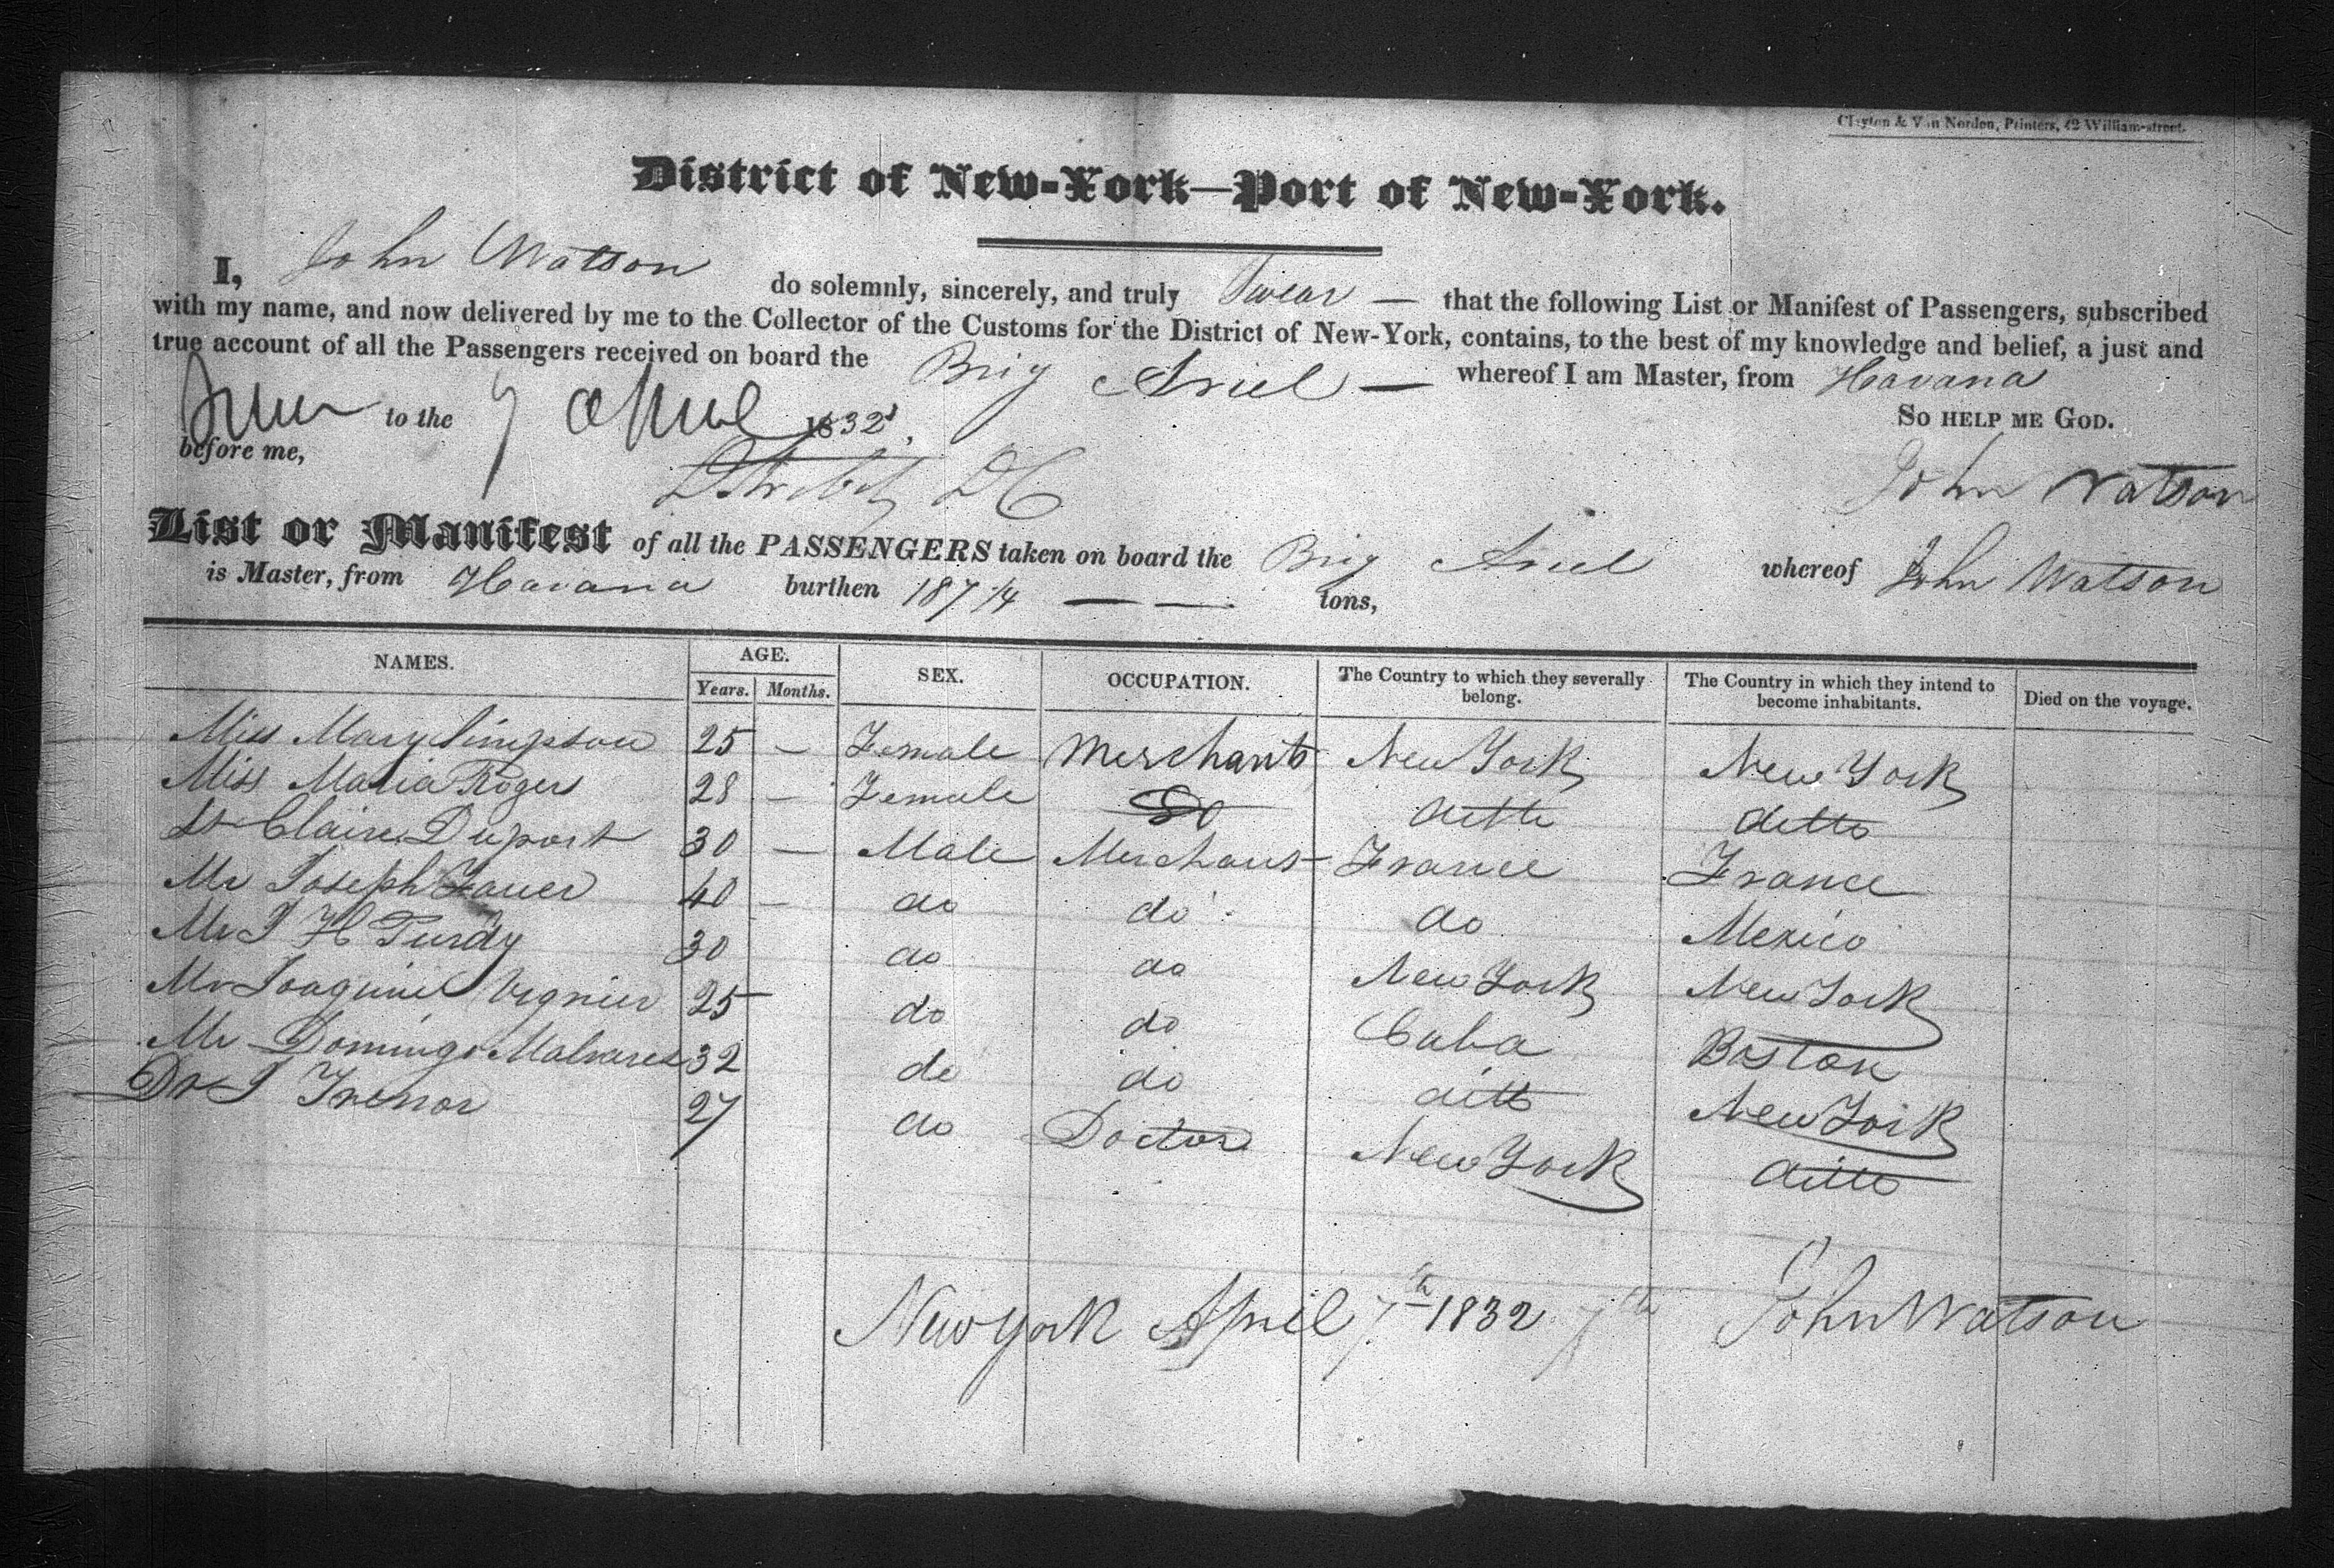 Clayton & Van Norden, Printers, 42 William-street.
District of New-York—Port of New-York.
I, John Watson do solemnly, sincerely, and truly Swear — that the following List or Manifest of Passengers, subscribed
with my name, and now delivered by me to the Collector of the Customs for the District of New-York, contains, to the best of my knowledge and belief, a just and
true account of all the Passengers received on board the Brig Ariel — whereof I am Master, from Havana
to the 7 April 1832
So help me God.
before me,
John Watson
List or Manifest of all the PASSENGERS taken on board the Brig Ariel whereof John Watson
is Master, from Havana burthen 187 14 — — tons,
NAMES. AGE. Years. Months. SEX. OCCUPATION. The Country to which they severally belong. The Country in which they intend to become inhabitants. Died on the voyage.
Miss Mary Simpson 25 — Female Merchants New York New York
Miss Maria Roger 28 — Female Do ditto ditto
St Claire Duport 30 — Male Merchant France France
Mr Joseph 40 — do do do Mexico
Mr J H Purdy 30 do do New York New York
Mr Joaquin Vignier 25 — do do Cuba Boston
Mr Domingo Malvares 32 do do ditto New York
Dr J Trenor 27 do Doctor New York ditto
New York April 7th 1832 7th John Watson